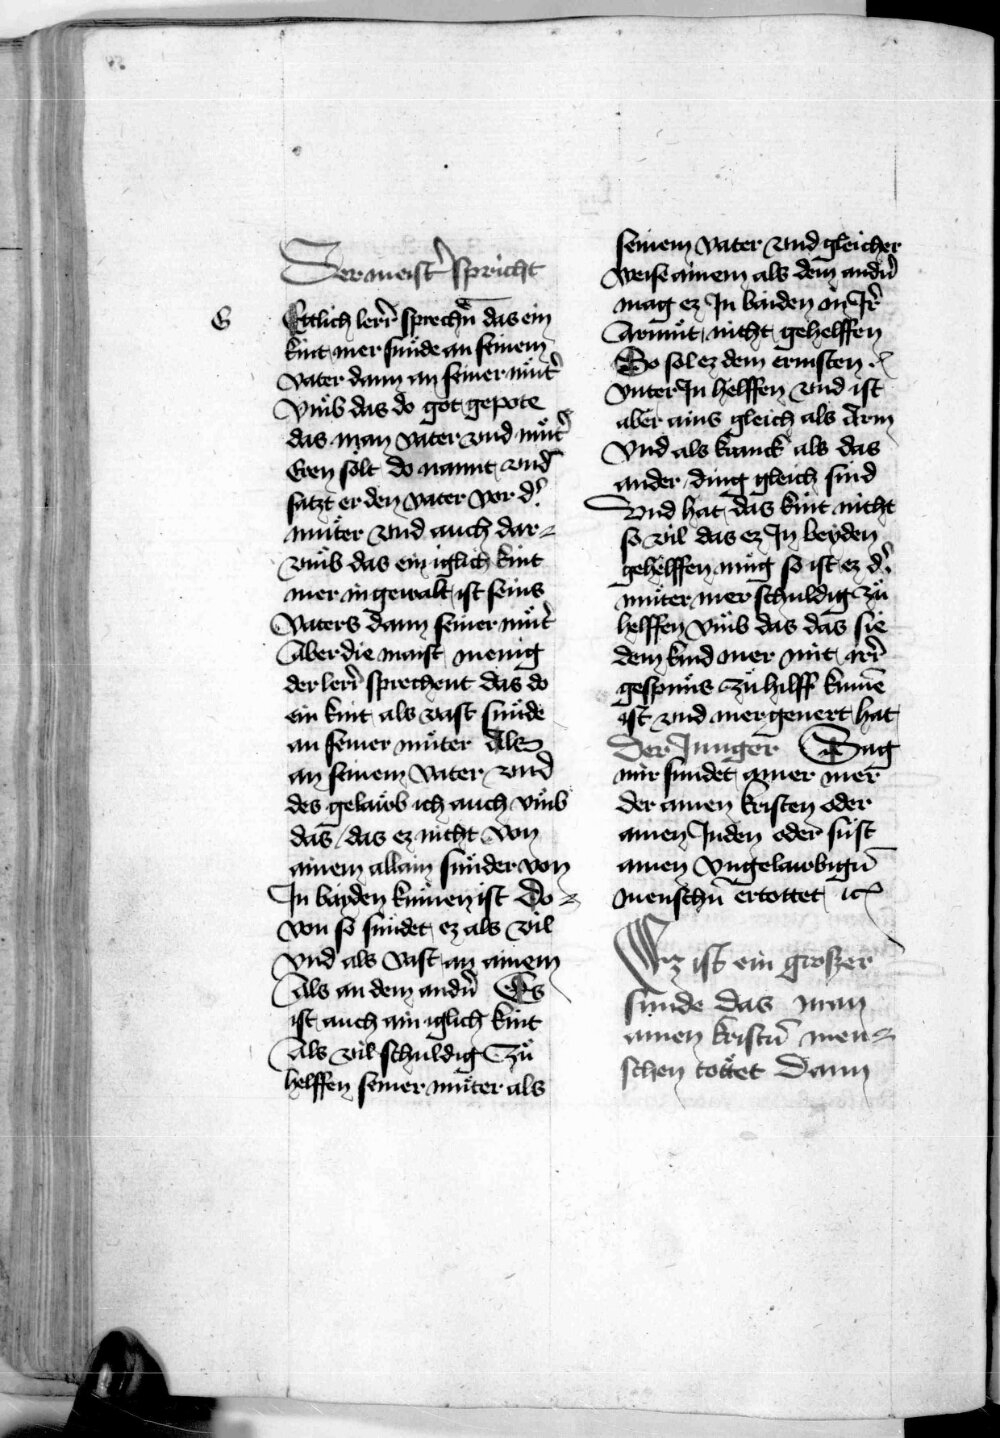 Der meist' spricht
G
Ettlich lerr' sprechn̄ das ein
kint mer sunde an seinem
vater dann an seiner mut'
Vmb das do got gepote
das man vater vnd mut'
Eren solt do nannt vnd
satzt er den vater vor d'
muter vnd auch dar-
vmb das ein iglich kint
mer in gewalt ist seins
vaters dann seiner mut'
Aber die maist menig
der lerr' sprechent das do
ein kint als vast sunde
an seiner muter Als
an seinem Vater vnd
des gelawb ich auch vmb
das das ez nicht von
ainem allain sunder von
In bayden kumen ist Do-
von so sundet ez als vil
vnd als vast an ainem
Als an dem andn̄ Es
ist auch ain iglich kint
Als vil schuldig zu
helffen seiner muter als
seinem vater vnd gleicher
weise ainem als dem andn̄
mag ez In baiden in Ir'
Armut nicht gehelffen
So sol ez dem ermsten
vnter In helffen vnd ist
aber ains gleich als Arm
Vnd als kranck als das
ander ding gleich sind
Vnd hat das kint nicht
so vil das ez In beyden
gehelffen mug so ist ez d'
muter mer schuldig zu
helffen vmb das das sie
dem kind mer mit irr'
gespuns zu hilff kume
ist vnd mer genert hat
Der Junger Sag
mir sundet ainer mer
der ainen kristen oder
ainen Juden oder sust
ainen vngelawbign̄
menschn̄ ertottet ic
Ez ist ein groszer
sunde das man
ainen kristn̄ men-
schen tottet Dann